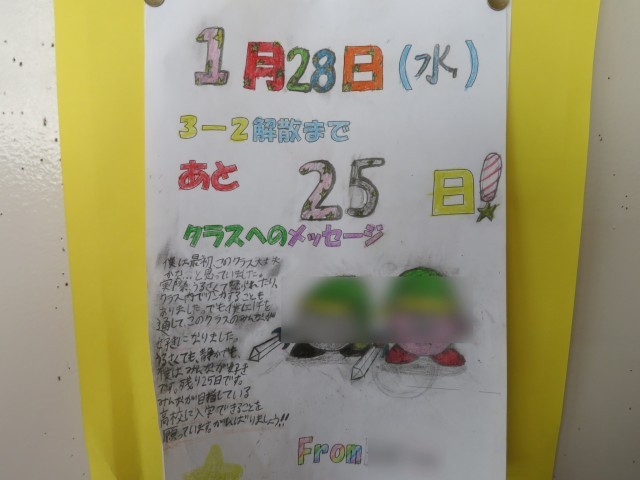 1月28日(水)
3-2解散まで
あと 25日!
クラスへのメッセージ
僕は最初、このクラス大丈夫
かな…と思っていました。
実際、うるさくて
クラス内で
ありました。でも、
通して、このクラスのみんなが
好きになりました。
うるさくても、静かでも
僕はみんなが好き
です。残り25日です。
みんなが目指している
高校に入学できることを
願っています。がんばりましょう!!
From